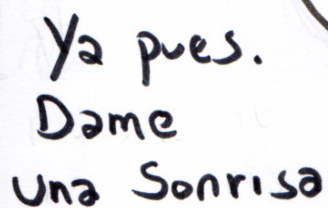 Ya pues.
Dame
una Sonrisa